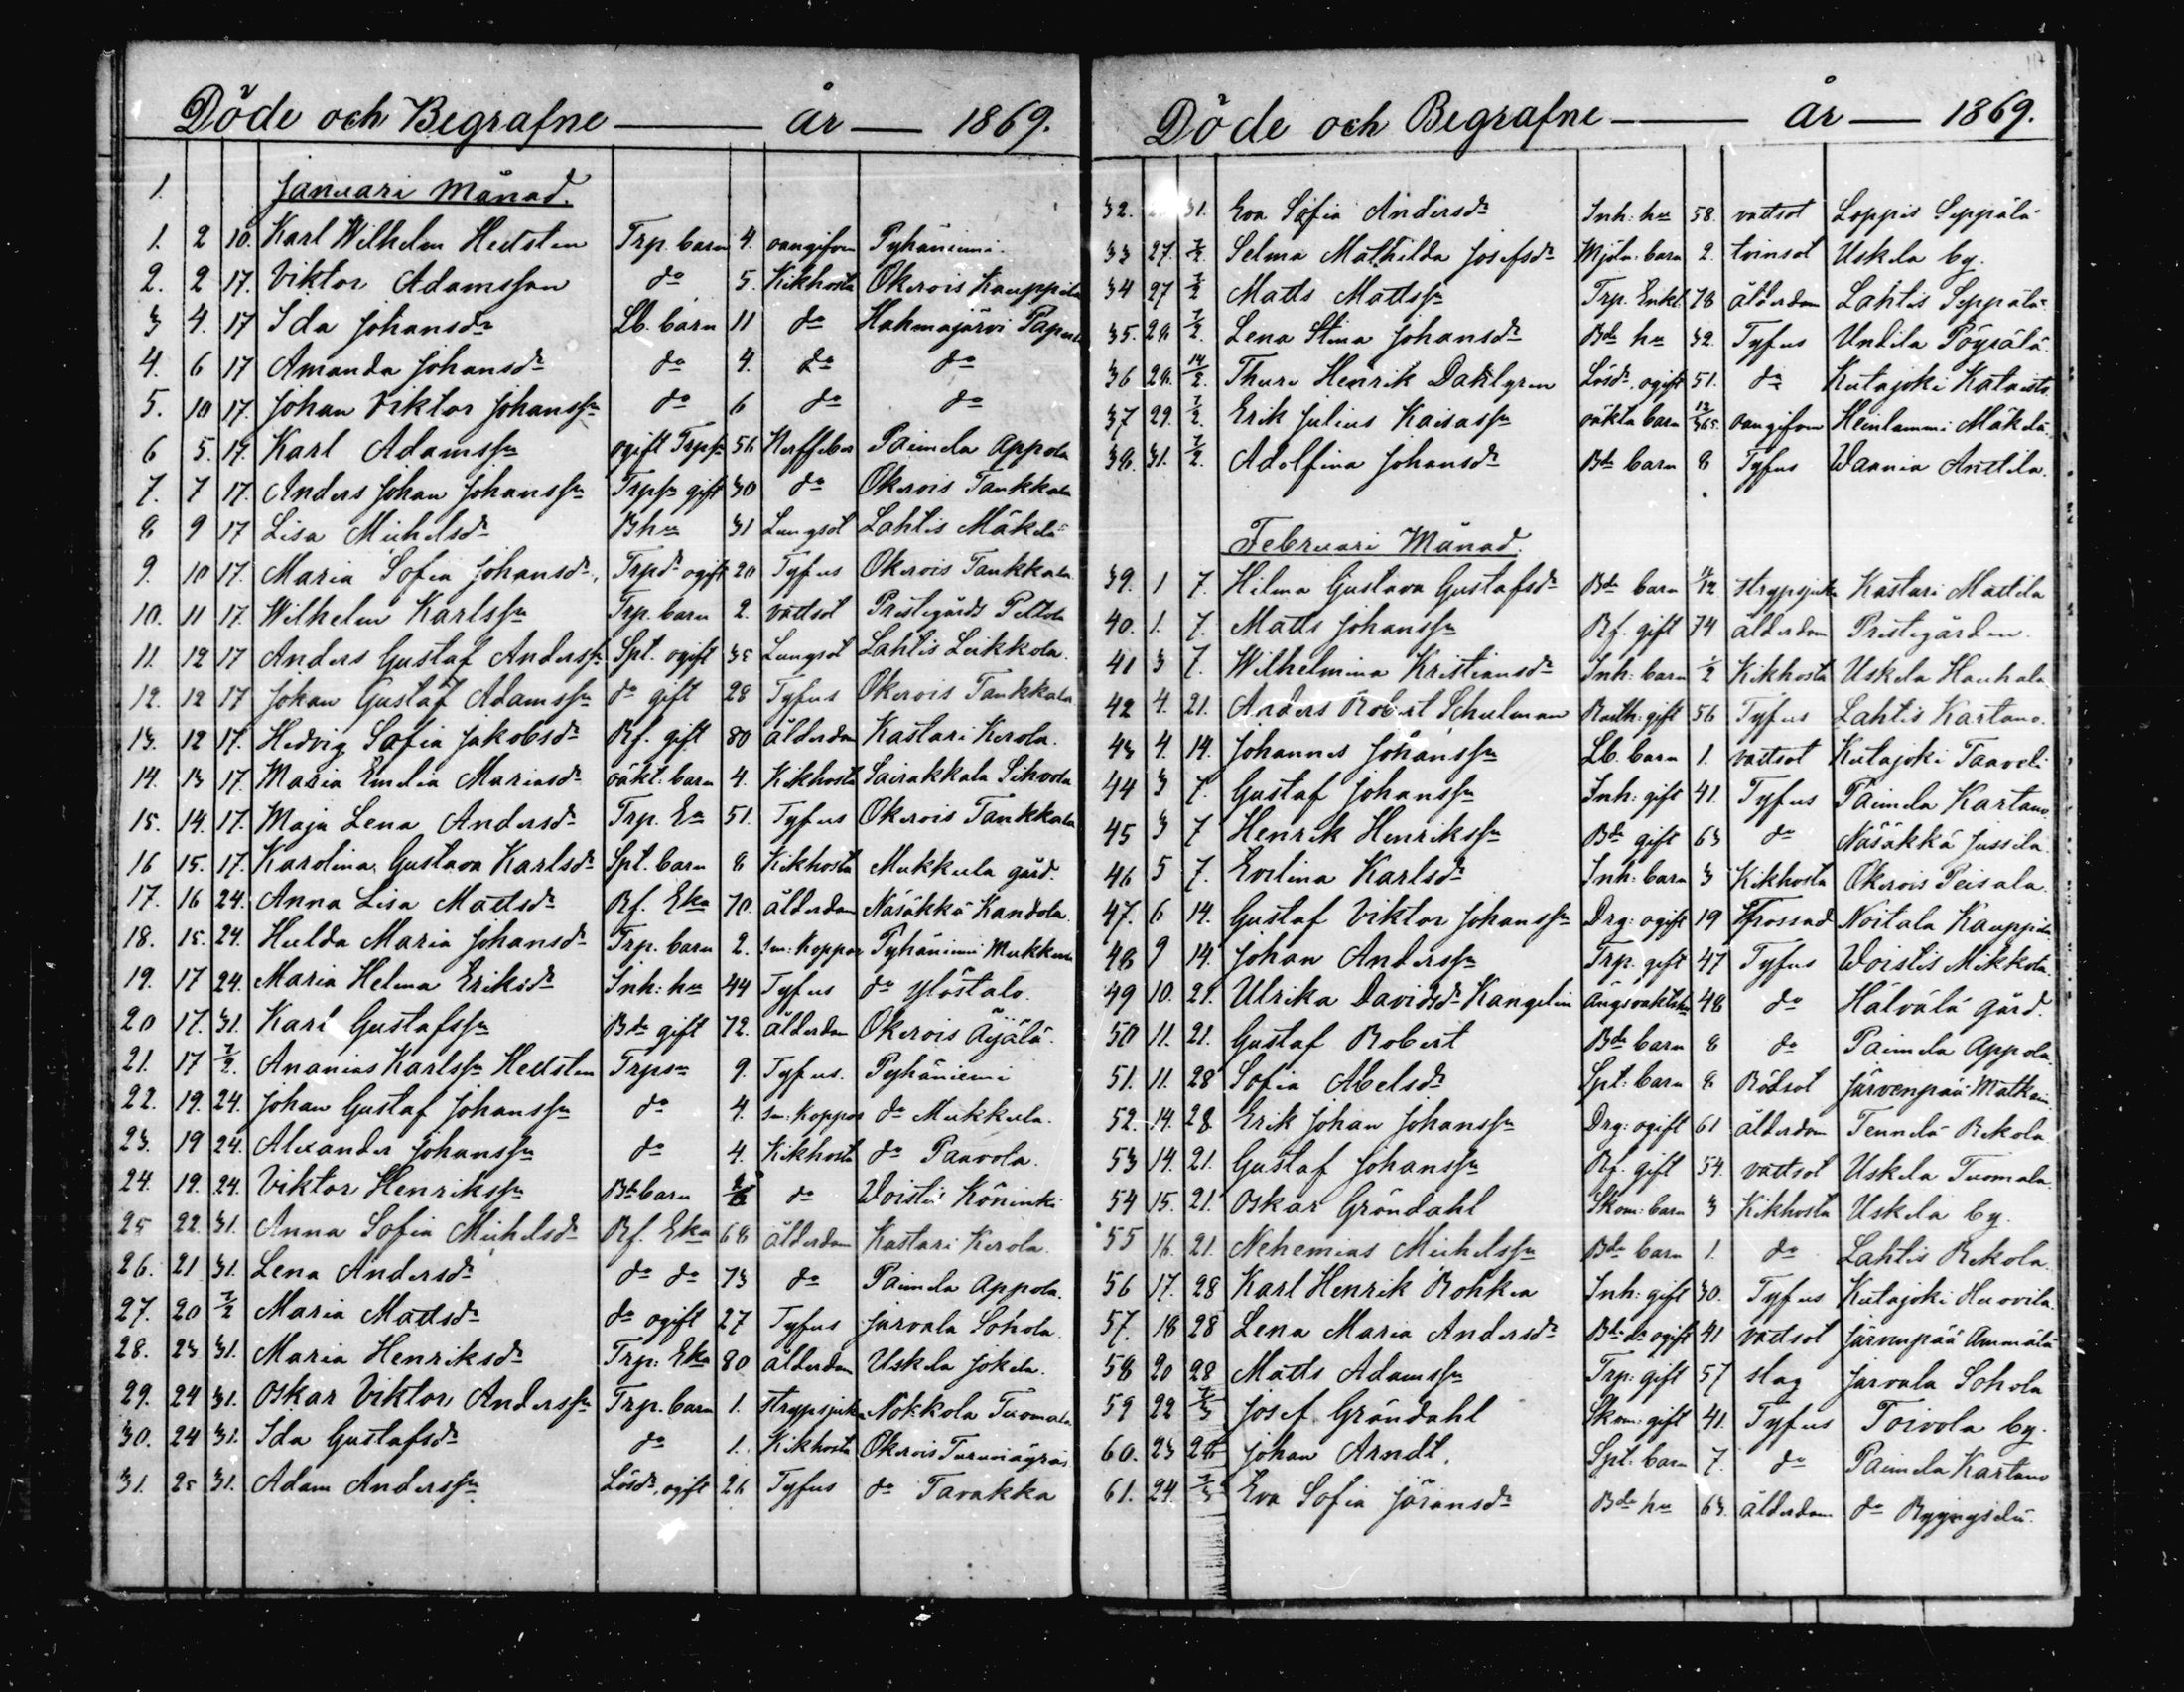 Döde och Begrafne år 1869.
1. Januari Månad.
1. 2 10. Karl Wilhelm Hedsten Trp. barn 4. oangifven Pyhäniemi.
2. 2 17. Viktor Adamsson do 5. Kikhosta Okerois Kauppila
3 4. 17 Ida Johansdr Lb. barn 11 do Hahmajärvi
4. 6 17 Amanda Johansdr do 4. do do
5. 10 17. Johan Viktor Johanssn do 6 do do
6 5. 17. Karl Adamssn ogift Trpsn 56 Nerffeber Paimela Appola
7. 7 17. Anders Johan Johanssn Trpsn gift 30 do Okerois Tankkala
8 9 17 Lisa Michelsdr B hu 31 Lungsot Lahtis Mäkelä
9. 10 17. Maria Sofia Johansdr Trpdr ogift 20 Tyfus Okerois Tankkala
10. 11 17. Wilhelm Karlssn Trp. barn 2. vattsot Prestegårds Peltola
11. 12 17 Anders Gustaf Anderssn Spt. ogift 35 Lungsot Lahtis Leikkola.
12. 12 17 Johan Gustaf Adamssn do gift 28 Tyfus Okerois Tankkala
13. 12 17. Hedvig Sofia Jakobsdr Rf. gift 80 ålderdom Kastari Kerola.
14. 13 17. Maria Emelia Mariasdr oäkt. barn 4. Kikhosta Sairakkala Sihvola
15. 14. 17. Maja Lena Andersdr Trp. Ea 51. Tyfus Okerois Tankkala
16 15. 17. Karolina Gustava Karlsdr Spt. barn 8 Kikhosta Mukkula gård.
17. 16 24. Anna Lisa Mattsdr Rf. Eka 70. ålderdom Nasäkkä Kandola.
18. 15. 24. Hulda Maria Johansdr Trp. barn 2. sm: Koppor Pyhäniemi Mukkula
19. 17 24. Maria Helena Eriksdr Inh: hu 44 Tyfus do Ylöstalo.
20 17. 31. Karl Gustafssn Bde gift 72. ålderdom Okerois Äijälä.
21. 17 7/2. Ananias Karlssn Hedsten Trpsn 9. Tyfus. Pyhäniemi
22. 19. 24. Johan Gustaf Johanssn do 4. sm: Koppor do Mukkula.
23. 19 24. Alexander Johanssn do 4. Kikhosta do Paavola.
24. 19. 24. Viktor Henrikssn Bde barn do Woistis Köninki
25 22. 31. Anna Sofia Michelsdr Rf. Eka 68 ålderdom Kastari Kerola.
26. 21 31. Lena Andersdr do do 73 do Paimela Appola.
27. 20 7/2 Maria Mattsdr do ogift 27 Tyfus Jarvala Sohola
28. 23 31. Maria Henriksdr Trp: Eka 80 ålderdom Uskela Jokela.
29. 24 31. Oskar Viktor Anderssn Trp. barn 1. strypsjuka Nokkola Tuomala
30. 24 31. Ida Gustafsdr do 1. Kikhosta Okerois
31. 25 31. Adam Anderssn Lösdr. ogift 26 Tyfus do Tavakka
Döde och Begrafne år 1869.
32. 31. Eva Sofia Andersdr Inh: hu 58. vattsot Loppis Seppälä
33 27. 7/2. Selma Mathilda Josefsdr Mjöln. barn 2. tvinsot Uskela by.
34 27 7/2 Matts Mattssn Trp. Enkl. 78 ålderdom Lahtis Seppälä
35. 28. 7/2. Lena Stina Johansdr Bde hu 32. Tyfus Undila Pöyrälä.
36 28. 14/2. Thure Henrik Dahlgren Lösdr. ogift 51. do Kutajoki
37 29. 7/2. Erik Julius Kaisassn oäkta barn 12/365 oangifven Heinlammi Mäkelä.
38. 31. 7/2. Adolfina Johansdr Bde barn 8 Tyfus Waania Anttila.
Februari Månad.
39. 1 7. Hilma Gustava Gustafsdr Bde barn 11/12 strypsjuka Kastari Mattila
40. 1. 7. Matts Johanssn Rf. gift 74 ålderdom Prestegården.
41 3 7. Wilhelmina Kristiansdr Inh: barn 1/2 Kikhosta Uskela Hauhala
42 4. 21. Anders Robert Schulman Rusth: gift 56 Tyfus Lahtis Kartano.
43 4. 14. Johannes Johanssn Lb. barn 1. vattsot Kutajoki Taaveli
44 3 7. Gustaf Johanssn Inh: gift 41. Tyfus Paimela Kartano
45 3 7 Henrik Henrikssn Bde gift 63 do Nasäkkä Jussila.
46 5 7. Evelina Karlsdr Inh: barn 3 Kikhosta Okerois Peisala.
47. 6 14. Gustaf Viktor Johanssn Drg: ogift 19 Krossad Noitala Kauppila
48 9 14. Johan Anderssn Trp. gift 47 Tyfus Woistis Mikkola.
49 10. 21. Ulrika Davidsdr Kangelin 48 do Hälvälä gård.
50 11. 21. Gustaf Robert Bde barn 8 do Paimela Appola
51. 11. 28 Sofia Abelsdr Spt: barn 8 Rödsot Järvenpää
52. 14. 28. Erik Johan Johanssn Drg: ogift 61 ålderdom Tennilä Rekola
53 14. 21. Gustaf Johanssn Rf. gift 54. vattsot Uskela Tuomala
54 15. 21. Oskar Gröndahl Skom: barn 3 Kikhosta Uskela by.
55 16. 21. Nehemias Michelssn Bde barn 1. do Lahtis Rekola.
56 17. 28 Karl Henrik Rohkea Inh: gift 30. Tyfus Kutajoki Huovila
57. 18 28 Lena Maria Andersdr Bde dr ogift 41 vattsot Järvenpää Ammälä
58 20 28 Matts Adamssn Trp: gift 57 slag Jarvala Sohola
59 22 7/3 Josef Gröndahl Skom: gift 41. Tyfus Toivola by.
60. 23 28 Johan Arndt. Spt. barn 7. do Paimela Kartano
61. 24. 7/3 Eva Sofia Jöransdr Bde hu 63. ålderdom do